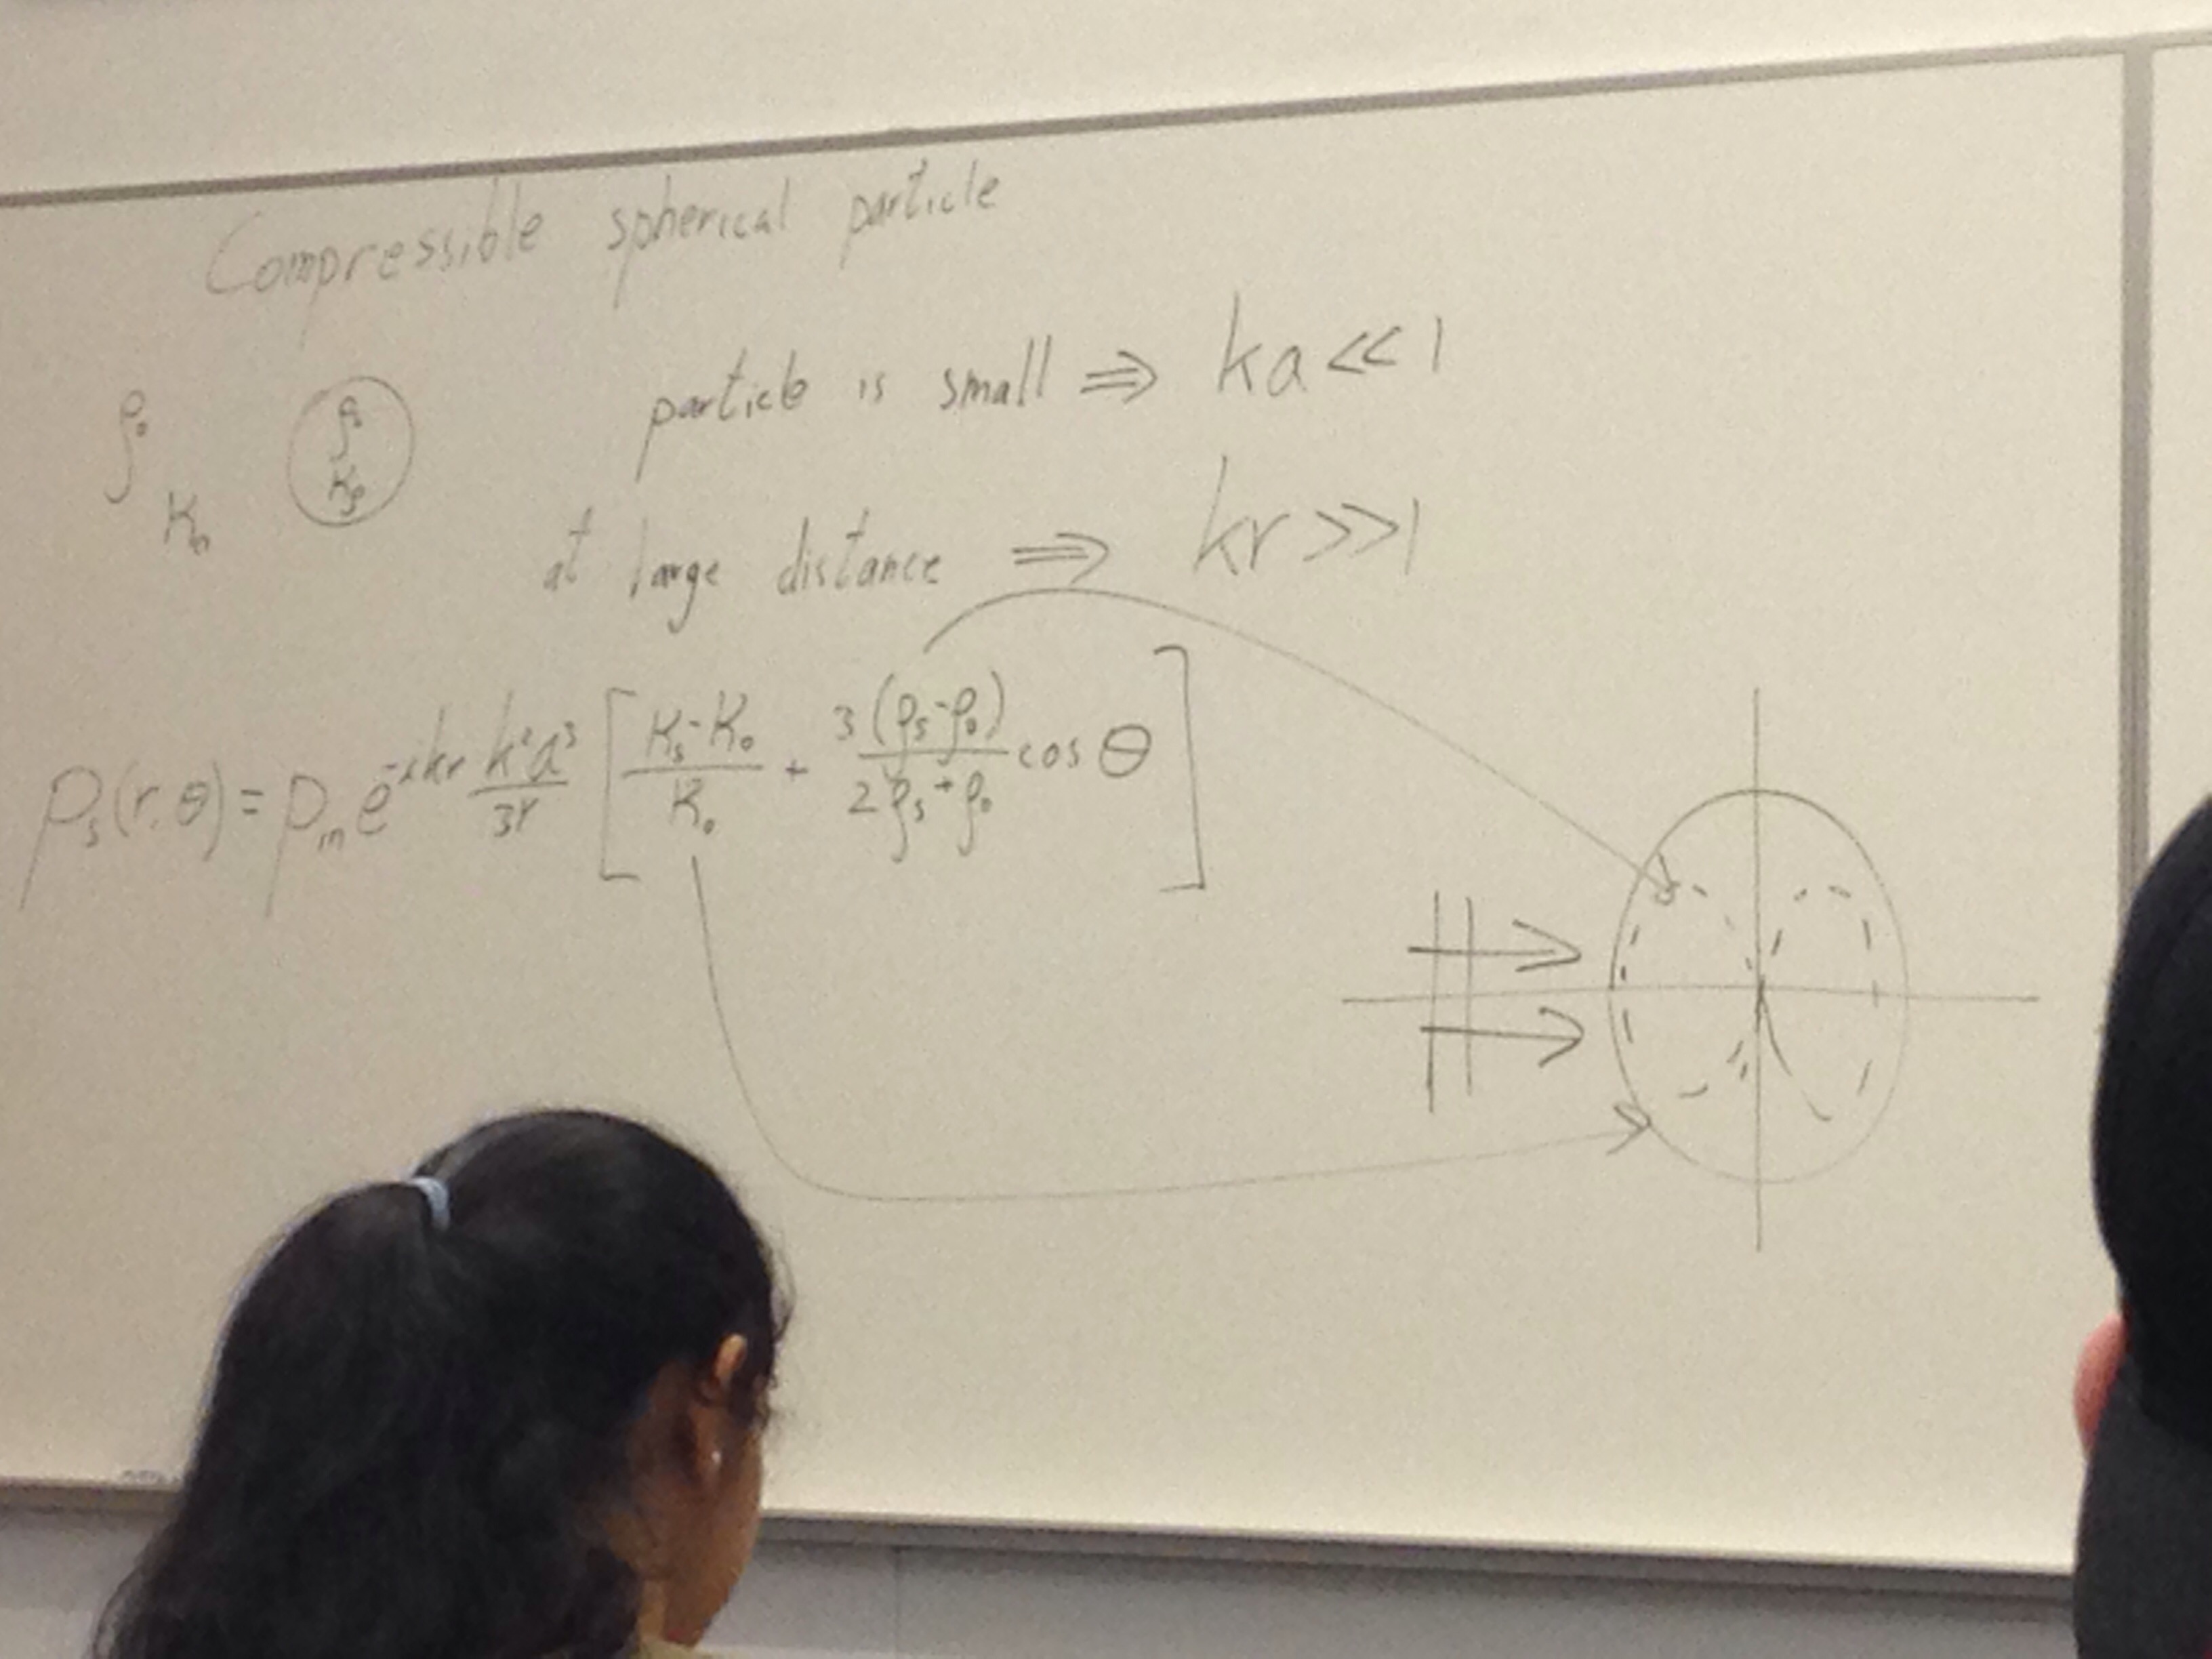 Compressible spherical particle
particle is small ⇒ ka << 1
ρ₀ K₀
at large distance ⇒ kr >> 1
pₛ(r,θ) = pᵢₙ e^{-ikr} k²a³/3r [ (Kₛ-K₀)/K₀ + 3(ρₛ-ρ₀)/(2ρₛ+ρ₀) cos θ ]